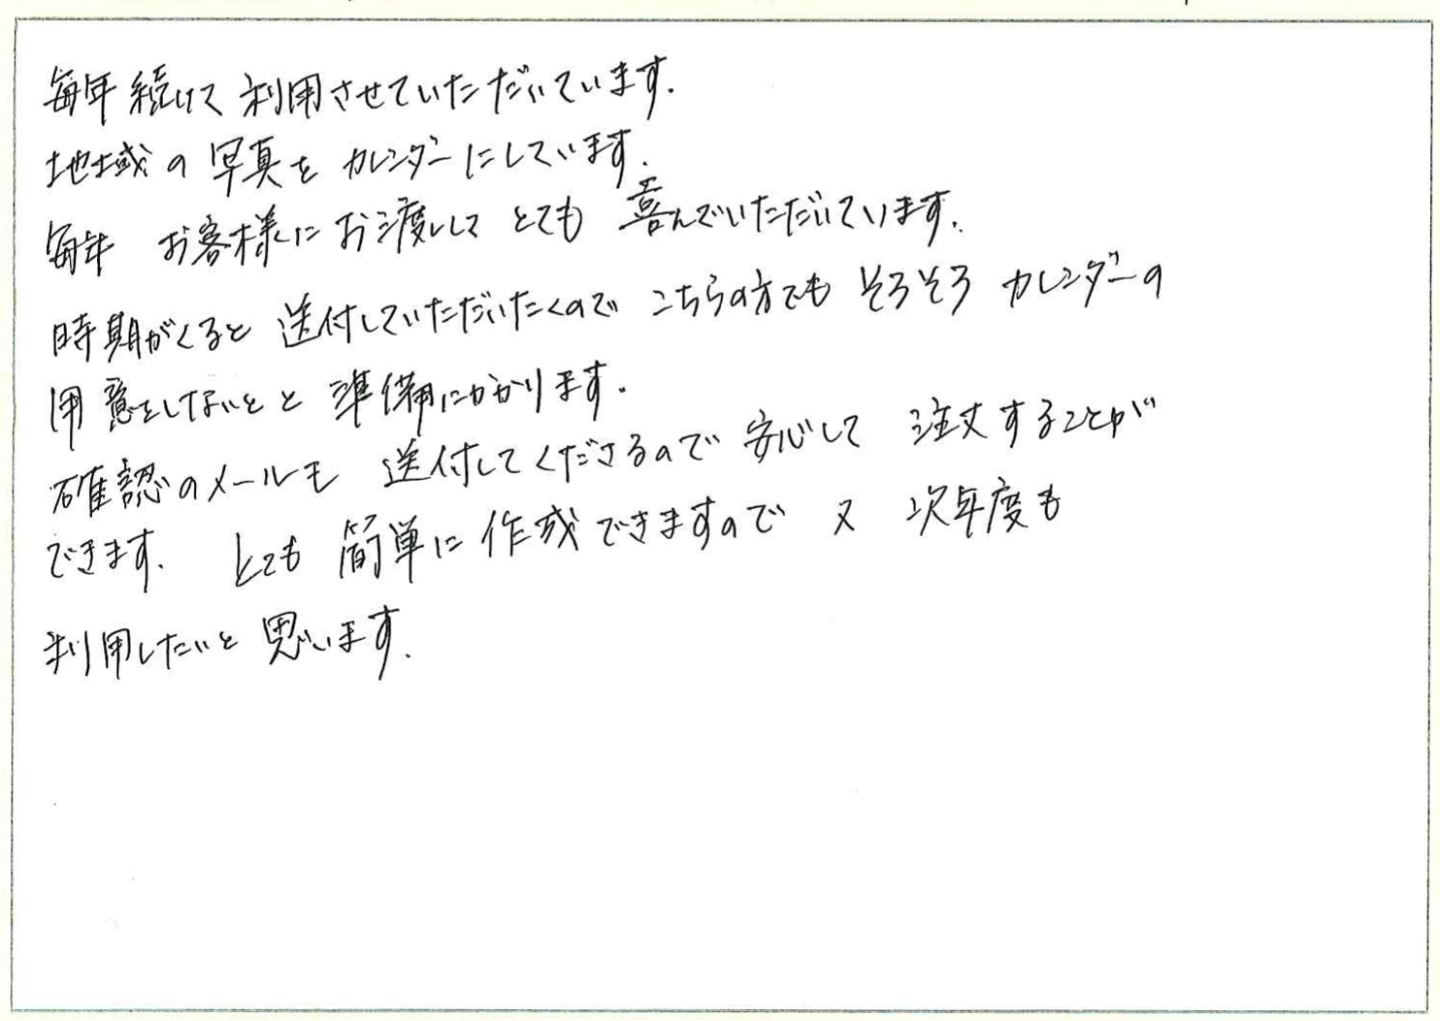 毎年続けて利用させていただいています.
地域の写真をカレンダーにしています.
毎年 お客様にお渡しして とても 喜んでいただいています.
時期がくると 送付していただいたくので こちらの方でも そろそろ カレンダーの
用意をしないとと 準備にかかります.
確認のメールも 送付してくださるので 安心して 注文することが
できます. とても 簡単に 作成できますので 又 次年度も
利用したいと 思います.